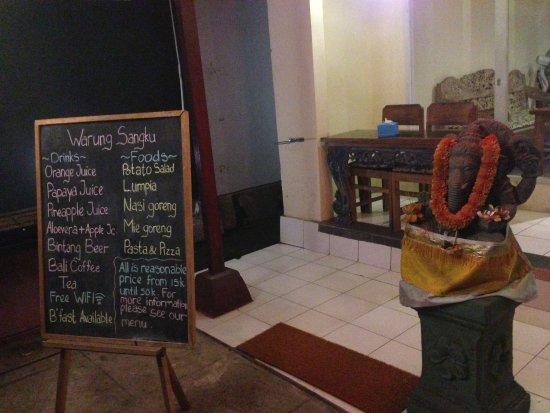 Warung Sangku
~Drinks~
Orange Juice
Papaya Juice
Pineapple Juice
Aloevera + Apple Jc.
Bintang Beer
Bali Coffee
Tea
Free WIFI
B'fast Available
~Foods~
Potato Salad
Lumpia
Nasi goreng
Mie goreng
Pasta & Pizza
All is reasonable
price from 15k
until 50k. For
more information
please see our
menu.